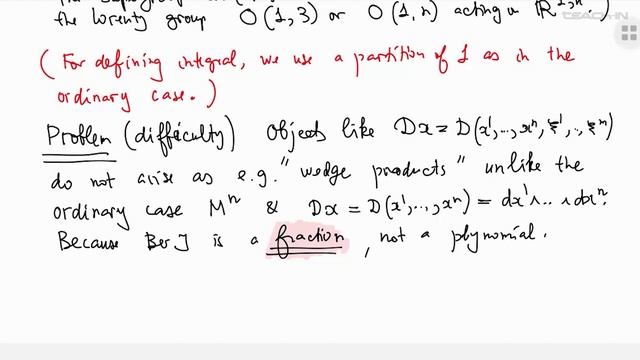 the Lorentz group O(1,3) or O(1,n) acting on ℝ
(For defining integral, we use a partition of 1 as in the
ordinary case.)
Problem (difficulty) Objects like Dx = D(x¹,..,xⁿ,ξ¹,..,ξᵐ)
do not arise as e.g. "wedge products" unlike the
ordinary case Mⁿ & Dx = D(x¹,..,xⁿ) = dx¹∧..∧dxⁿ.
Because Ber J is a fraction, not a plynomial.